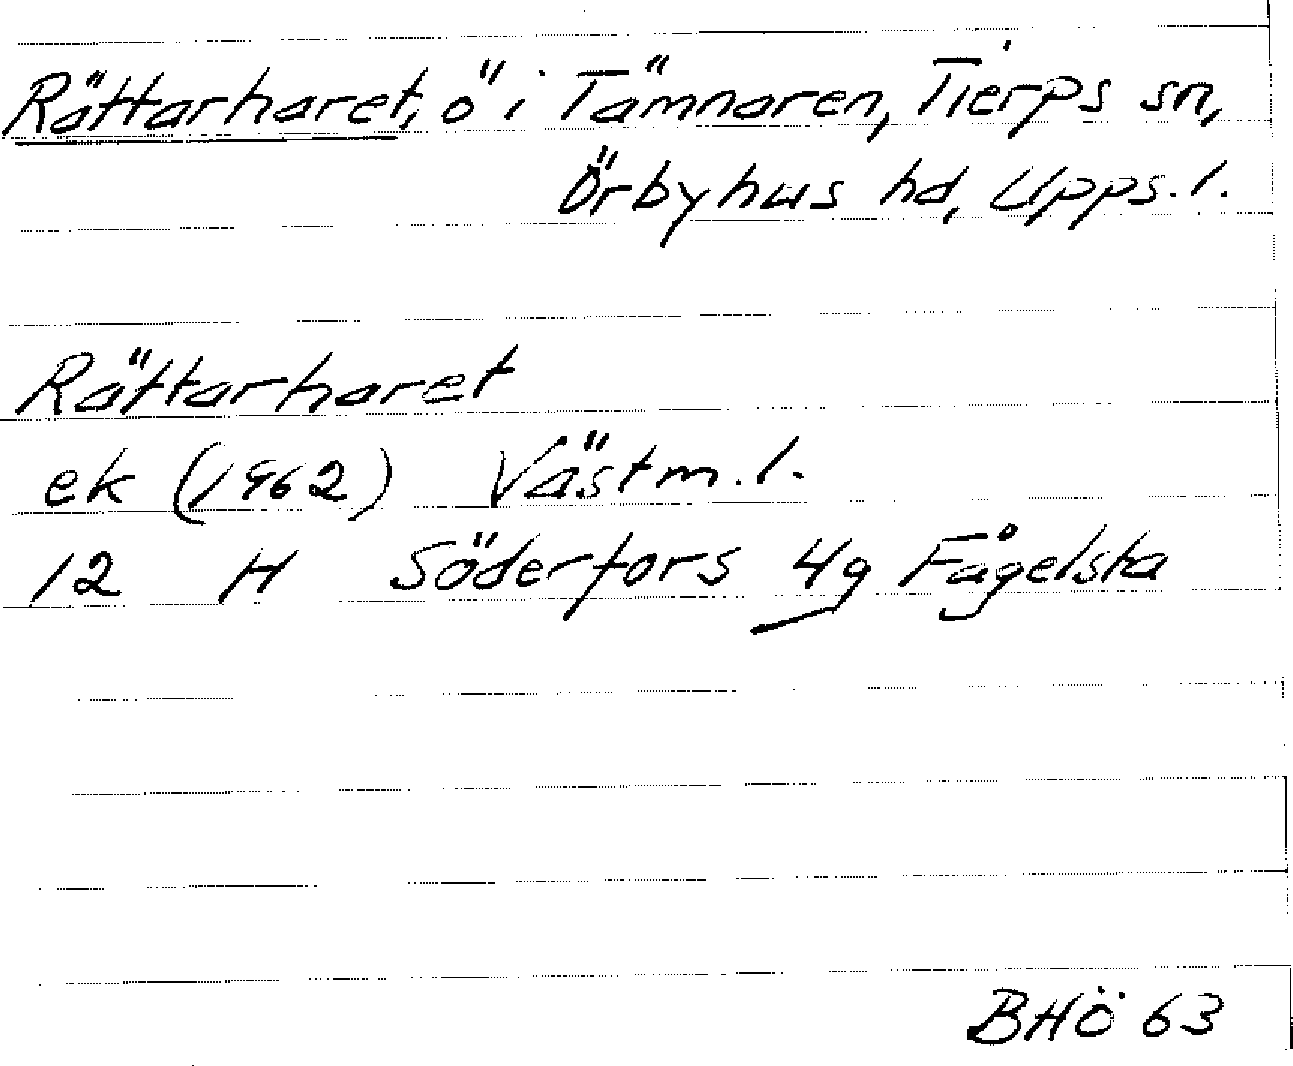 Rättarharet, ö i Tämnaren, Tierps sn,
Örbyhus hd, Upps. l.
Rättarharet
ek (1962) Västm. l.
12 H Söderfors 4g Fågelsta
BHÖ 63